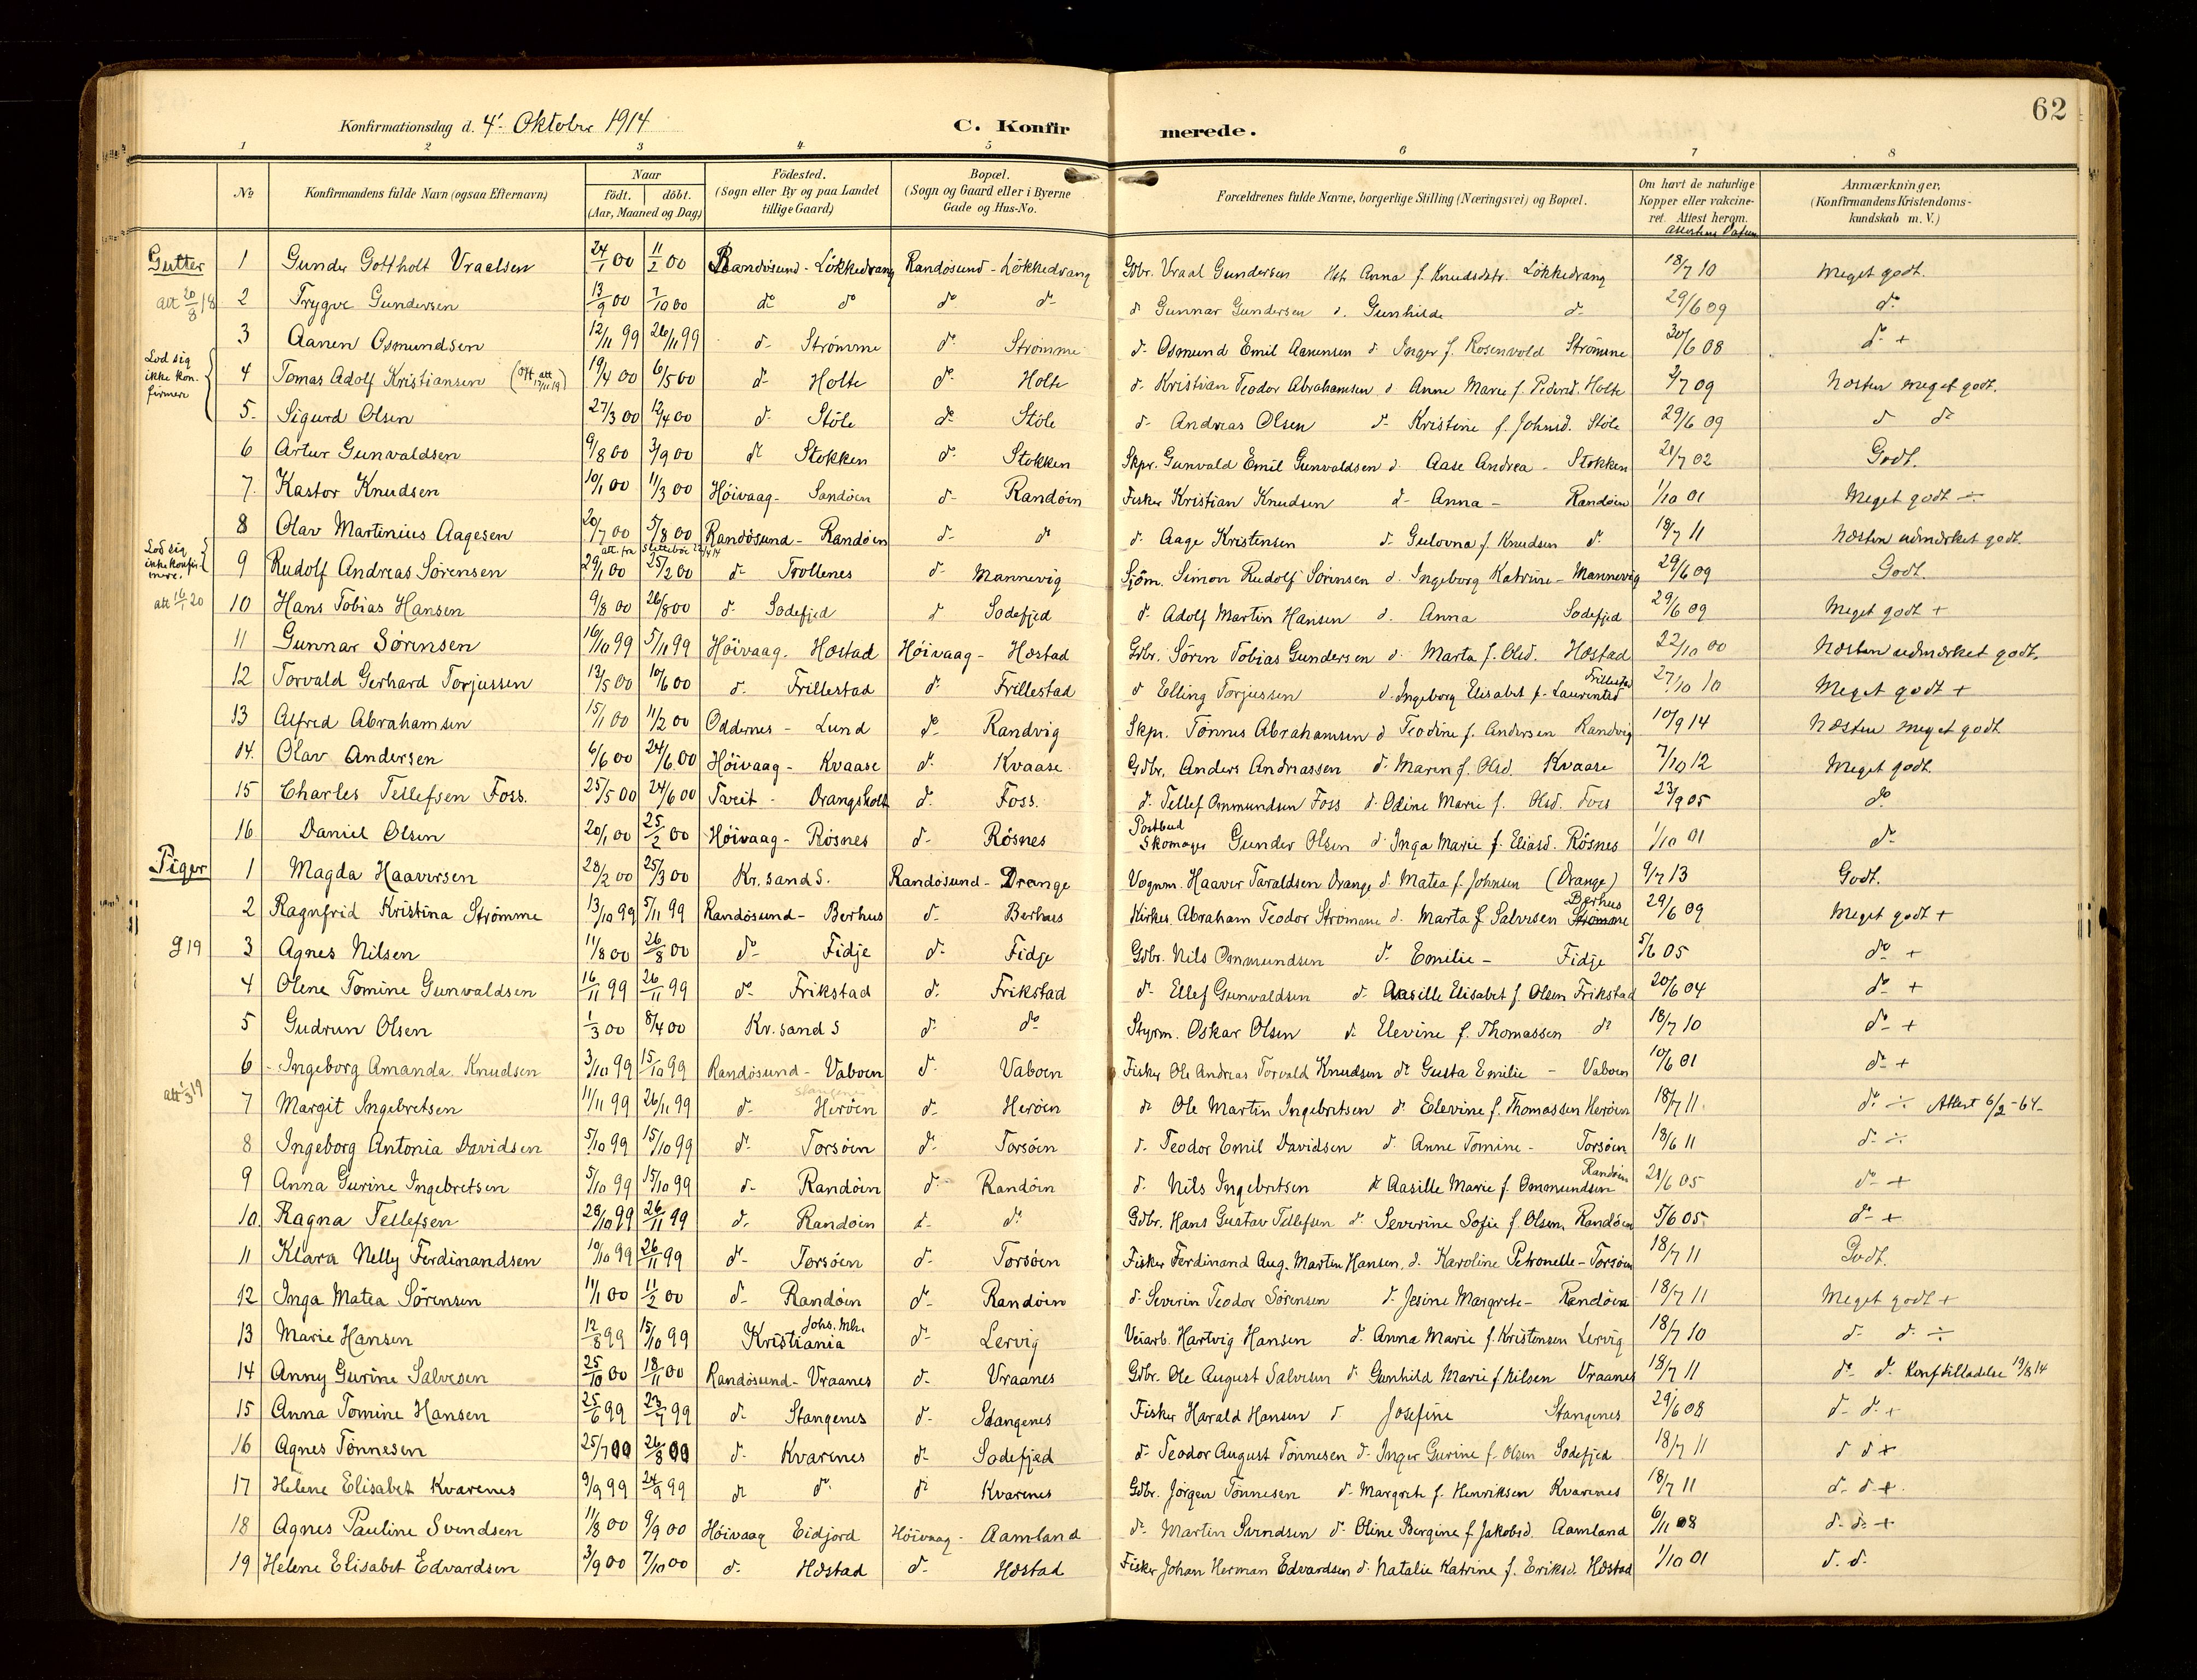 62
Konfirmationsdag d. 4' Oktober 1914 C. Konfirmerede.
1 2 3 4 5 6 7 8
No Konfirmandens fulde Navn (ogsaa Efternavn) Naar födt. döbt. (Aar, Maaned og Dag) Födested. (Sogn eller By og paa Landet tillige Gaard) Bopæl. (Sogn og Gaard eller i Byerne Gade og Hus-No. Forældrenes fulde Navne, borgerlige Stilling (Næringsvei) og Bopæl. Om havt de naturlige Kopper eller vakcineret. Attest herom. Attestens Datum Anmærkninger, (Konfirmandens Kristendomskundskab m. V.)
Gutter 1 Gunder Gottholt Vraalsen 24/1 00 11/2 00 Randösund - Lökkedrang Randösund - Lökkedrang Gdbr. Vraal Gundersen Hst. Anna f. Knudsdtr. Lökkedrang 18/7 10 Meget godt.
att 20/8 18 2 Trygve Gundersen 13/9 00 7/10 00 do do do do do Gunnar Gundersen do Gunhilde do 29/6 09 do
3 Aanen Osmundsen 12/11 99 26/11 99 do Strömme do Strömme do Osmund Emil Aanensen do Inger f. Rosenvold Strömme 30/6 08 do +
Lod sig ikke konfirmere { 4 Tomas Adolf Kristiansen (att 17/11 19) 19/4 00 6/5 00 do Holte do Holte do Kristian Teodor Abrahamsen do Anne Marie f. Pedersd. Holte 2/7 09 Næsten meget godt.
5 Sigurd Olsen 27/3 00 12/4 00 do Stöle do Stöle do Andreas Olsen do Kristine f. Johnsd. Stöle 29/6 09 do do
6 Artur Gunvaldsen 9/8 00 3/9 00 do Stokken do Stokken Skpr. Gunvald Emil Gunvaldsen do Aase Andrea - Stokken 21/7 02 Godt.
7 Kastor Knudsen 10/1 00 11/3 00 Höivaag - Sandöen do Randöen Fisker Kristian Knudsen do Anna - Randöen 1/10 01 Meget godt ÷
8 Olav Martinius Aagesen 20/7 00 5/8 00 Randösund - Randöen do do do Aage Kristensen do Gulovna f. Knudsen do 18/7 11 Næsten udmærket godt.
Lod sig ikke konfirmere. { 9 Rudolf Andreas Sörensen 29/1 00 25/2 00 do Trollenes do Mannevig Sjöm. Simon Rudolf Sörensen do Ingeborg Katrine - Mannevig 29/6 09 Godt.
att 16/1 20 10 Hans Tobias Hansen 9/8 00 26/8 00 do Sodefjed do Sodefjed do Adolf Martin Hansen do Anna Sodefjed 29/6 09 Meget godt +
11 Gunnar Sörensen 16/10 99 5/11 99 Höivaag - Hæstad Höivaag - Hæstad Gdbr. Sören Tobias Gundersen do Marta f. Olsd. Hæstad 22/10 00 Næsten udmærket godt.
12 Torvald Gerhard Torjussen 13/5 00 10/6 00 do Frillestad do Frillestad do Elling Torjussen do Ingeborg Elisabet f. Laurintsd Frillestad 27/10 10 Meget godt +
13 Alfred Abrahamsen 15/1 00 11/2 00 Oddernes - Lund do Randvig Skpr. Tönnes Abrahamsen do Teodine f. Andersen Randvig 10/9 14 Næsten meget godt
14 Olav Andersen 6/6 00 24/6 00 Höivaag - Kvaase do Kvaase Gdbr. Anders Andreassen do Maren f. Olsd. Kvaase 7/10 12 Meget godt.
15 Charles Tellefsen Foss. 25/5 00 24/6 00 Tveit - Drangsholt do Foss. do Tellef Ommundsen Foss do Odine Marie f. Olsd. Foss 23/9 05 do
16 Daniel Olsen 20/1 00 25/2 00 Höivaag - Rösnes do Rösnes Postbud Skomager Gunder Olsen do Inga Marie f. Eliasd. Rösnes 1/10 01 do
Piger 1 Magda Haaversen 28/2 00 25/3 00 Kr. sand S. Randösund - Drange Vognm. Haaver Taraldsen Drange do Matea f. Johnsen (Drange) 9/7 13 Godt.
2 Ragnfrid Kristina Strömme 13/10 99 5/11 99 Randösund - Berhus do Berhus Kirkes. Abraham Teodor Strömme do Marta f. Salvesen Strömme Berhus 29/6 09 Meget godt +
919 3 Agnes Nilsen 11/8 00 26/8 00 do Fidje do Fidje Gdbr. Nils Ommundsen do Emilie - Fidje 5/6 05 do +
4 Olene Tomine Gunvaldsen 16/11 99 26/11 99 do Frikstad do Frikstad do Ellef Gunvaldsen do Aasille Elisabet f. Olsen Frikstad 20/6 04 do +
5 Gudrun Olsen 1/3 00 8/4 00 Kr. sand S do do Styrm. Oskar Olsen do Elevine f. Thomassen do 18/7 10 do +
6 Ingeborg Amanda Knudsen 3/10 99 15/10 99 Randösund - Vaboen do Vaboen Fisker Ole Andreas Torvald Knudsen do Gusta Emilie - Vaboen 10/6 01 do +
att 1/3 19 7 Margit Ingebretsen 11/11 99 26/11 99 do Heröen do Heröen do Ole Martin Ingebretsen do Elevine f. Thomassen Heröen 18/7 11 do ÷ Attest 6/2 - 64
8 Ingeborg Antonia Davidsen 5/10 99 15/10 99 do Torsöen do Torsöen do Teodor Emil Davidsen do Anne Tomine - Torsöen 18/6 11 do ÷
9 Anna Gurine Ingebretsen 5/10 99 15/10 99 do Randöen do Randöen do Nils Ingebretsen do Aasille Marie f. Ommundsen Randöen 21/6 05 do +
10 Ragna Tellefsen 28/10 99 26/11 99 do Randöen do do Gdbr. Hans Gustav Tellefsen do Severine Sofie f. Olsen Randöen 5/6 05 do +
11 Klara Nelly Ferdinandsen 10/10 99 26/11 99 do Torsöen do Torsöen Fisker Ferdinand Aug. Martin Hansen, do Karoline Petronelle - Torsöen 18/7 11 Godt.
12 Inga Matea Sörensen 11/1 00 11/2 00 do Randöen do Randöen do Severin Teodor Sörensen do Jesine Margrete - Randöen 18/7 11 Meget godt +
13 Marie Hansen 12/8 99 15/10 99 Kristiania Johs. Mh. do Lervig Veiarb. Hartvig Hansen do Anna Marie f. Kristensen Lervig 18/7 10 do do ÷
14 Anny Gurine Salvesen 25/10 00 18/11 00 Randösund - Vraanes do Vraanes Gdbr. Ole August Salvesen do Gunhild Marie f. Nilsen Vraanes 18/7 11 do do Konftilladelse 19/8 14
15 Anna Tomine Hansen 25/6 99 23/7 99 do Stangenes do Stangenes Fisker Harald Hansen do Josefine Stangenes 29/6 08 do do +
16 Agnes Tönnesen 25/7 00 26/8 00 do Kvarenes do Sodefjed do Teodor August Tönnesen do Inger Gurine f. Olsen Sodefjed 18/7 11 do do +
17 Helene Elisabet Kvarenes 9/9 99 24/9 99 do do do Kvarenes Gdbr. Jörgen Tönnesen do Margrete f. Henriksen Kvarenes 18/7 11 do do +
18 Agnes Pauline Svendsen 11/8 00 9/9 00 Höivaag Eidjord Höivaag - Aamland do Martin Svendsen do Oline Bergine f. Jakobsd. Aamland 6/11 08 do do +
19 Helene Elisabet Edvardsen 3/9 00 7/10 00 do Hæstad do Hæstad Fisker Johan Herman Edvardsen do Natalie Katrine f. Eriksd. Hæstad 1/10 01 do do